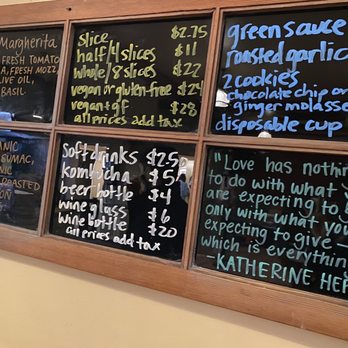 Margherita
FRESH TOMATO
A, FRESH MOZZ
LIVE OIL,
BASIL
Slice $2.75
half/4 slices $11
whole/8 slices $22
vegan or gluten-free $24
vegan + gf $28
all prices add tax
green sauce
roasted garlic
2 cookies
chocolate chip or
ginger molasses
disposable cup
ANIC
SUMAC,
NIC
ROASTED
ON
Soft drinks $2.50
kombucha $5
beer bottle $4
wine glass $6
wine bottle $20
all prices add tax
"Love has nothin
to do with what y
are expecting to g
only with what you
expecting to give –
which is everythin
-KATHERINE HEP